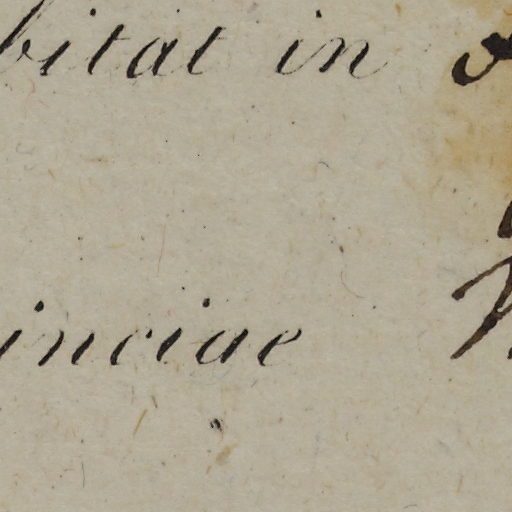 bitat in
inciae